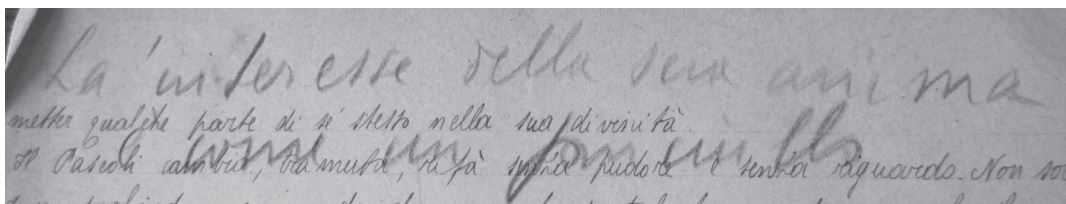 La' interesse della sua anima
metter qualche parte di sé stesso nella sua divinità.
è come un fanciullo
Il Pascoli cambia, tramuta, rifà senza pudore e senza riguardo. Non